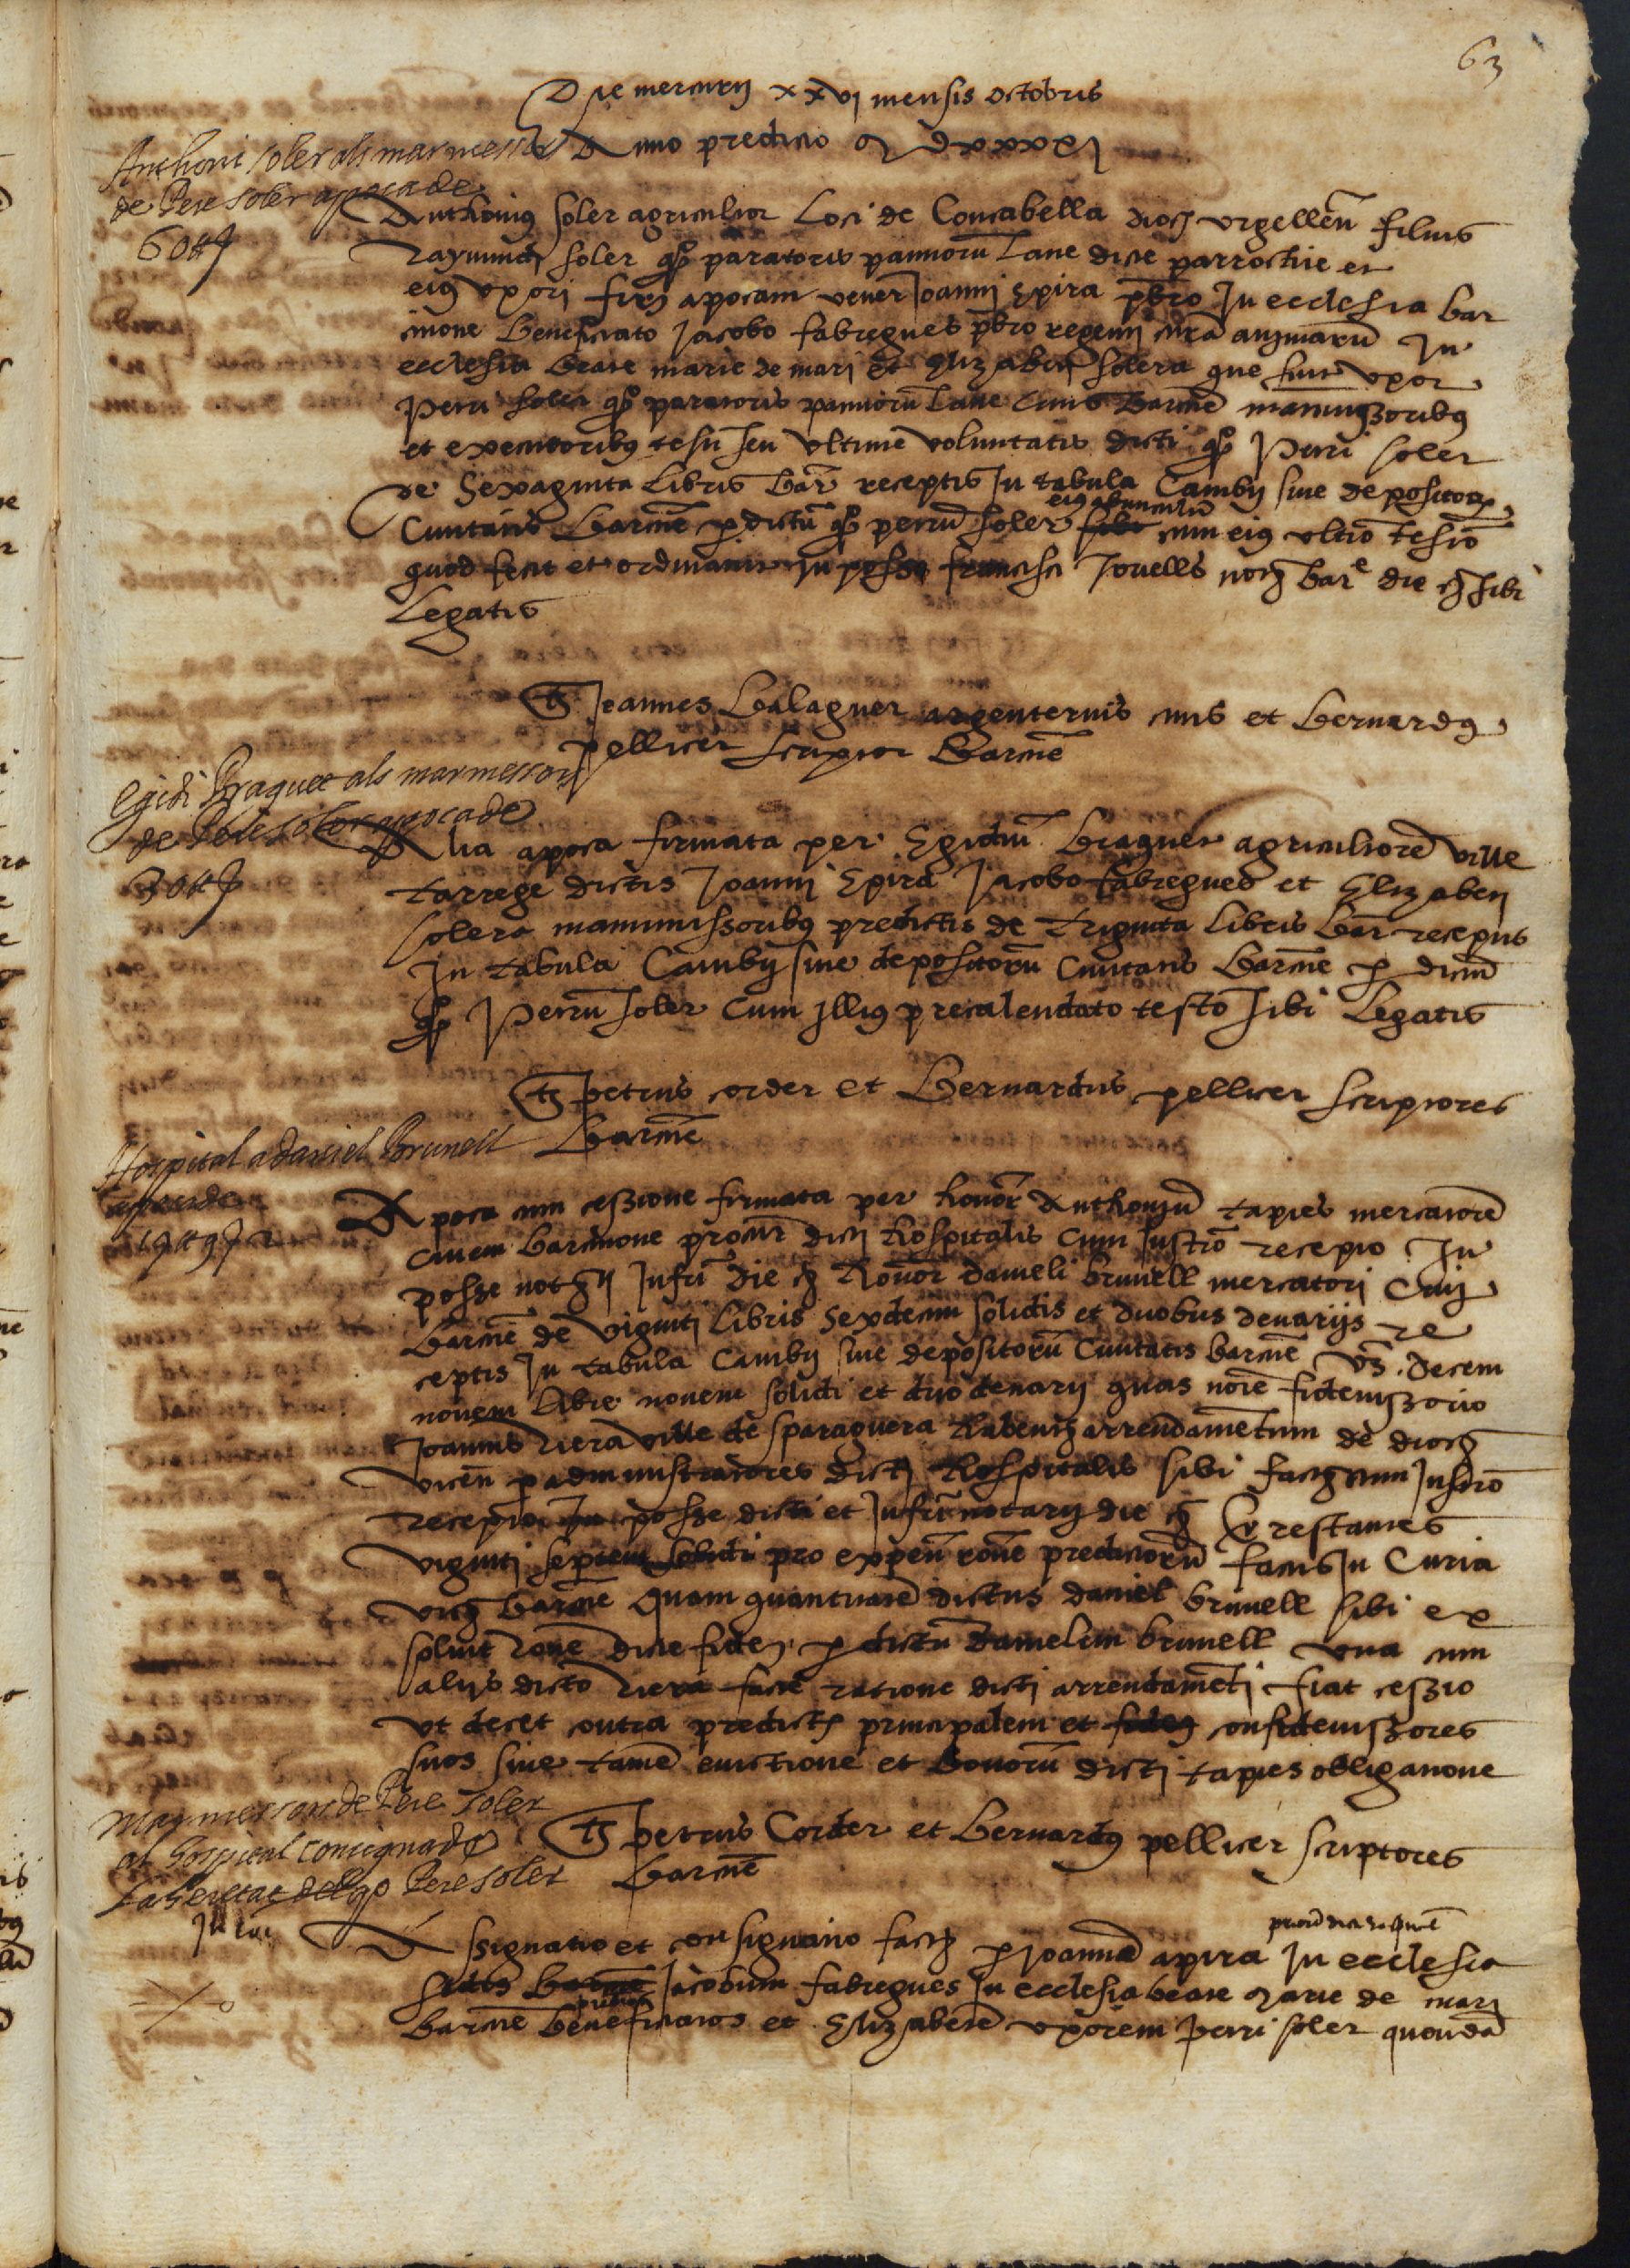 63
Die mercurij xxvj mensis octobris
Anno predicto M D xxxxj
Anthoni soler als marmessors
de Pere soler apoca de
60 ₶
Anthonius soler agricultor Loci de Concabella dioc urgellen filius
Raymundi soler qo paratoris pannorum Lane dicte parrochie et
eius uxori firm apocam vener Joannj Spira pbro Jn ecclesia bar
cinone Beneficiato Jacobo fabregues pbro regenti cura animarum Jn
ecclesia beate marie de mari et Elizabeti solera que fuit uxor
Petri soler qo paratoris pannorum Lane civis Barcne manumissoribus
et executoribus testi seu ultime voluntatis dicti qo Petri soler
de Sexaginta Libris bar receptis Jn tabula Cambij sive depositorum
Civitatis Barcne per dictum qo petrum soler eius avunculum cum eius ultio testio
quod fecit et ordinavit Jn posse francisci Jovells not bar e die sibi
Legatis
Ts Joannes Balaguer argenterius civis et Bernardus
pellicer scriptor Barcne
Egidi Braguet als marmessors
de Pere soler apoca de
30 ₶
Alia apoca firmata per Egidium Braguet agricultorem ville
tarrege dictis Joannj Spira Jacobo fabregues et Elizabeti
solera manumissoribus predictis de triginta Libris bar receptis
Jn tabula Cambij sive depositorum Civitatis Barcne per dictum
qo Petrum soler cum illius precalendato testo sibi Legatis
Ts petrus corder et Bernardus pellicer scriptores
Barcne
Hospital a daniel Brunell
apoca de
19 ₶ 9 2
Apoca cum cessione firmata per honor Anthonjum tapies mercatorem
civem barcinone procur dicti hospitalis cum Jnstro recepto Jn
posse notarij Jnfri die honor danieli brunell mercatori Civi
Barcne de viginti Libris Sexdecim solidis et duobus denarijs re
ceptis Jn tabula Cambij sive depositorum Civitatis barcne vs. decem
novem Libre novem solidi et duo denarij quas nore fideiussorio
Joannis Riera ville de sparaguera habentis arrendamentum de dioc
vicen per administratores dicti hospitalis sibi fact cum Jnstro
recepto Jn posse dicti et Jnfri notarij die Et restantes
viginti septem solidi pro expen rone predictorum factis Jn Curia
vicarij barcne quam quantitatem dictus daniel brunell sibi ex
solvit rone dicte fidej. per dictum danielem brunell una cum
alijs dicto riera facte ratione dicti arrendamenti fiat cessio
ut decet contra predict principalem et confideiussores
suos sine tamen evictione et bonorum dicti tapies obligatione
Ts petrus Corder et Bernardus pellicer scriptores
Barcne
Marmessors de Pere Soler
al hospital consignado
La heretat del qo Pere soler
Assignatio et consignatio fact per Joannem apira Jn ecclesia
sedis Jacobum fabregues Jn ecclesia beate Marie de mari
barcne beneficiatos et Elizabetem uxorem petri soler quondam